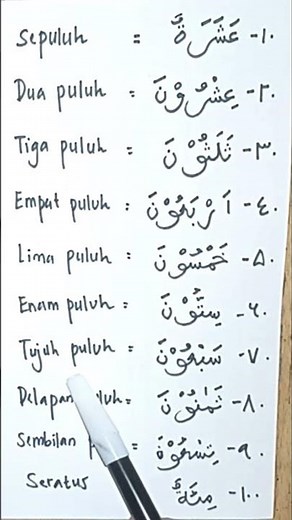 Sepuluh = عَشَرَةٌ -١٠
Dua puluh = عِشْرُوْنَ -٢٠
Tiga puluh = ثَلَثُوْنَ -٣٠
Empat puluh = اَرْبَعُوْنَ -٤٠
Lima puluh = خَمْسُوْنَ -٥٠
Enam puluh = سِتُّوْنَ -٦٠
Tujuh puluh = سَبْعُوْنَ -٧٠
Delapan = ثَمٰنُوْنَ -٨٠
Sembilan = تِسْعُوْنَ -٩٠
Seratus مِئَةٌ -١٠٠